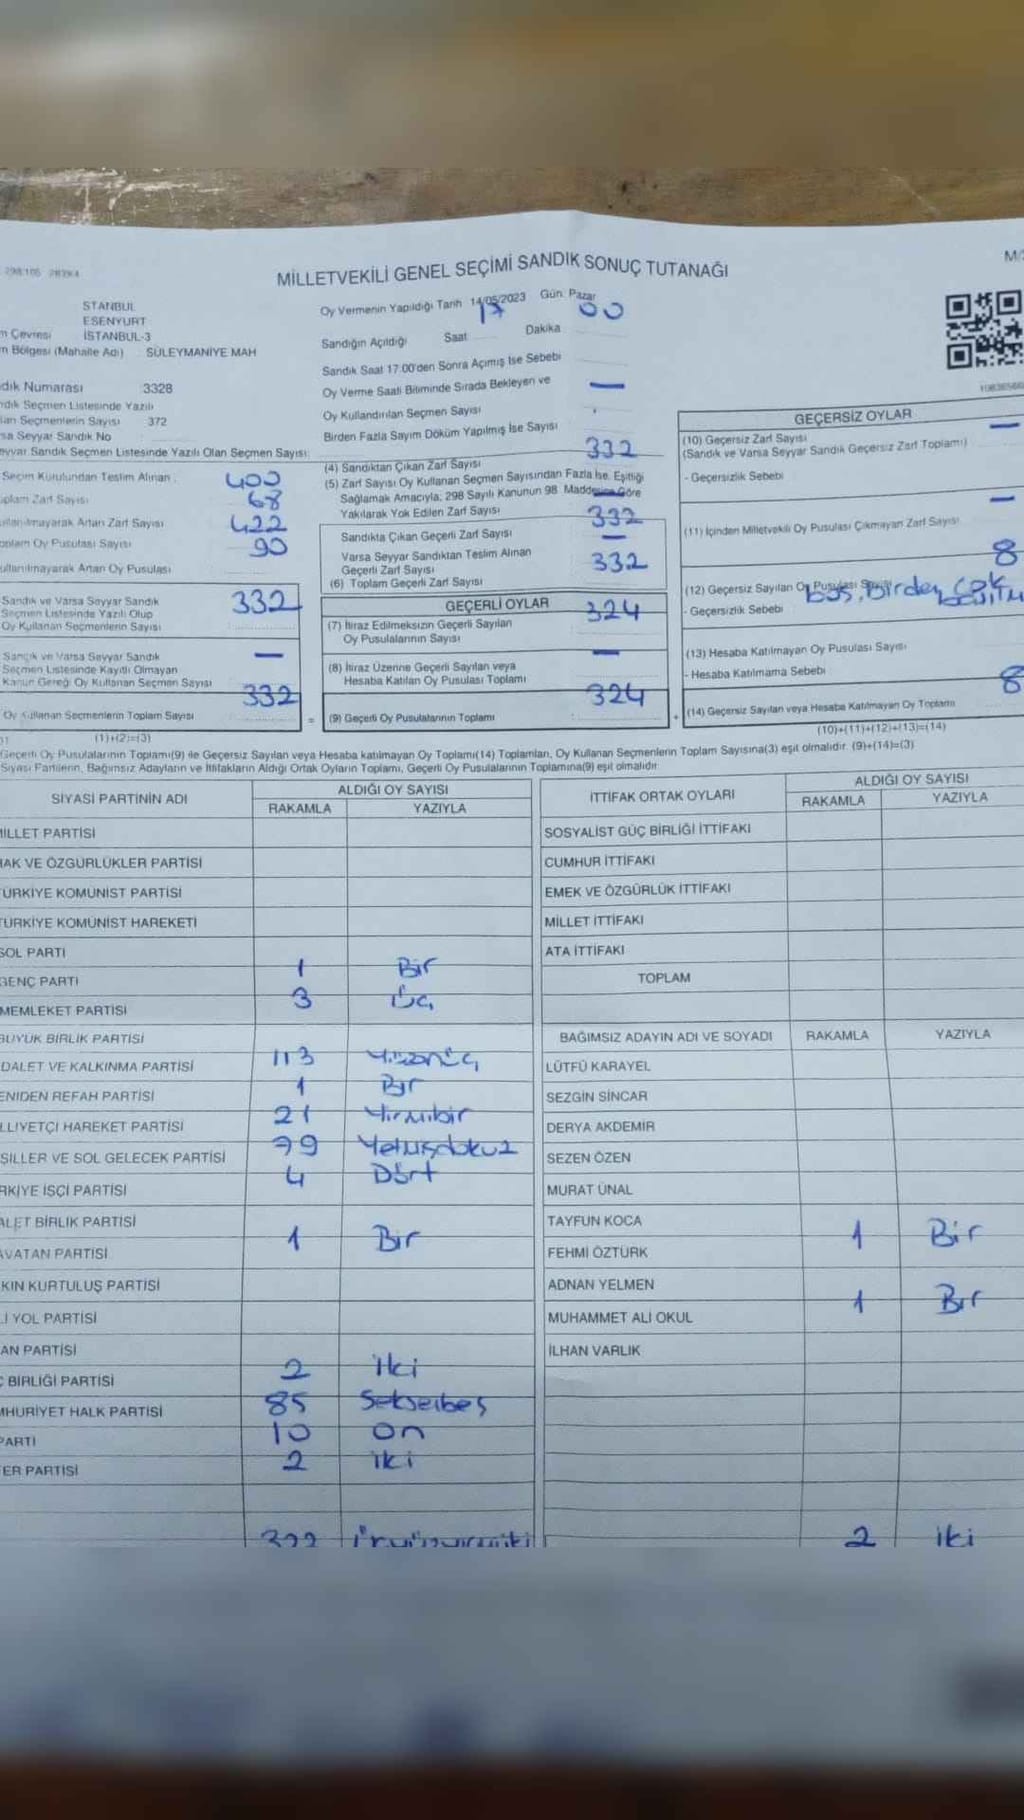 MİLLETVEKİLİ GENEL SEÇİMİ SANDIK SONUÇ TUTANAĞI
M/
STANBUL
ESENYURT
m Çevresi İSTANBUL-3
n Bölgesi (Mahalle Adı) SÜLEYMANİYE MAH
dık Numarası 3328
ndık Seçmen Listesinde Yazılı
lan Seçmenlerin Sayısı 372
sa Seyyar Sandık No
eyyar Sandık Seçmen Listesinde Yazılı Olan Seçmen Sayısı
Seçim Kurulundan Teslim Alınan 400
oplam Zarf Sayısı 68
ullanılmayarak Artan Zarf Sayısı 422
oplam Oy Pusulası Sayısı 90
ullanılmayarak Artan Oy Pusulası
Sandık ve Varsa Seyyar Sandık 332
Seçmen Listesinde Yazılı Olup
Oy Kullanan Seçmenlerin Sayısı
Sandık ve Varsa Seyyar Sandık —
Seçmen Listesinde Kayıtlı Olmayan
Kanun Gereği Oy Kullanan Seçmen Sayısı
332
Oy Kullanan Seçmenlerin Toplam Sayısı
(1)+(2)=(3)
Oy Vermenin Yapıldığı Tarih 14/05/2023 Gün: Pazar
17 00
Sandığın Açıldığı Saat Dakika
Sandık Saat 17.00'den Sonra Açımış İse Sebebi
Oy Verme Saati Bitiminde Sırada Bekleyen ve —
Oy Kullandırılan Seçmen Sayısı
Birden Fazla Sayım Döküm Yapılmış İse Sayısı
332
(4) Sandıktan Çıkan Zarf Sayısı
(5) Zarf Sayısı Oy Kullanan Seçmen Sayısından Fazla İse, Eşitliği
Sağlamak Amacıyla; 298 Sayılı Kanunun 98. Maddesine Göre —
Yakılarak Yok Edilen Zarf Sayısı
332
Sandıkta Çıkan Geçerli Zarf Sayısı —
Varsa Seyyar Sandıktan Teslim Alınan
Geçerli Zarf Sayısı 332
(6) Toplam Geçerli Zarf Sayısı
GEÇERLİ OYLAR
(7) İtiraz Edilmeksizin Geçerli Sayılan 324
Oy Pusulalarının Sayısı
(8) İtiraz Üzerine Geçerli Sayılan veya —
Hesaba Katılan Oy Pusulası Toplamı
324
= (9) Geçerli Oy Pusulalarının Toplamı
GEÇERSİZ OYLAR
(10) Geçersiz Zarf Sayısı —
(Sandık ve Varsa Seyyar Sandık Geçersiz Zarf Toplamı)
- Geçersizlik Sebebi
—
(11) İçinden Milletvekili Oy Pusulası Çıkmayan Zarf Sayısı
8
(12) Geçersiz Sayılan Oy Pusulası Sayısı
- Geçersizlik Sebebi boş, Birden çok
(13) Hesaba Katılmayan Oy Pusulası Sayısı
- Hesaba Katılmama Sebebi
8
+ (14) Geçersiz Sayılan veya Hesaba Katılmayan Oy Toplamı
(10)+(11)+(12)+(13)=(14)
Geçerli Oy Pusulalarının Toplamı(9) ile Geçersiz Sayılan veya Hesaba katılmayan Oy Toplamı(14) Toplamları, Oy Kullanan Seçmenlerin Toplam Sayısına(3) eşit olmalıdır. (9)+(14)=(3)
Siyasi Partilerin, Bağımsız Adayların ve İttifakların Aldığı Ortak Oyların Toplamı, Geçerli Oy Pusulalarının Toplamına(9) eşit olmalıdır.
SİYASİ PARTİNİN ADI ALDIĞI OY SAYISI
RAKAMLA YAZIYLA
MİLLET PARTİSİ
HAK VE ÖZGÜRLÜKLER PARTİSİ
TÜRKİYE KOMÜNİST PARTİSİ
TÜRKİYE KOMÜNİST HAREKETİ
SOL PARTİ
GENÇ PARTİ 1 Bir
MEMLEKET PARTİSİ 3 Üç
BÜYÜK BİRLİK PARTİSİ
DALET VE KALKINMA PARTİSİ 113 Yüzonüç
ENİDEN REFAH PARTİSİ 1 Bir
LLİYETÇİ HAREKET PARTİSİ 21 Yirmibir
ŞİLLER VE SOL GELECEK PARTİSİ 79 Yetmişdokuz
RKİYE İŞÇİ PARTİSİ 4 Dört
ALET BİRLİK PARTİSİ
AVATAN PARTİSİ 1 Bir
KIN KURTULUŞ PARTİSİ
Lİ YOL PARTİSİ
AN PARTİSİ
Ç BİRLİĞİ PARTİSİ 2 iki
MHURİYET HALK PARTİSİ 85 Seksenbeş
PARTİ 10 on
ER PARTİSİ 2 iki
322 Üçyüzyirmiiki
İTTİFAK ORTAK OYLARI ALDIĞI OY SAYISI
RAKAMLA YAZIYLA
SOSYALİST GÜÇ BİRLİĞİ İTTİFAKI
CUMHUR İTTİFAKI
EMEK VE ÖZGÜRLÜK İTTİFAKI
MİLLET İTTİFAKI
ATA İTTİFAKI
TOPLAM
BAĞIMSIZ ADAYIN ADI VE SOYADI RAKAMLA YAZIYLA
LÜTFÜ KARAYEL
SEZGİN SİNCAR
DERYA AKDEMİR
SEZEN ÖZEN
MURAT ÜNAL
TAYFUN KOCA
FEHMİ ÖZTÜRK 1 Bir
ADNAN YELMEN
MUHAMMET ALİ OKUL 1 Bir
İLHAN VARLIK
2 iki